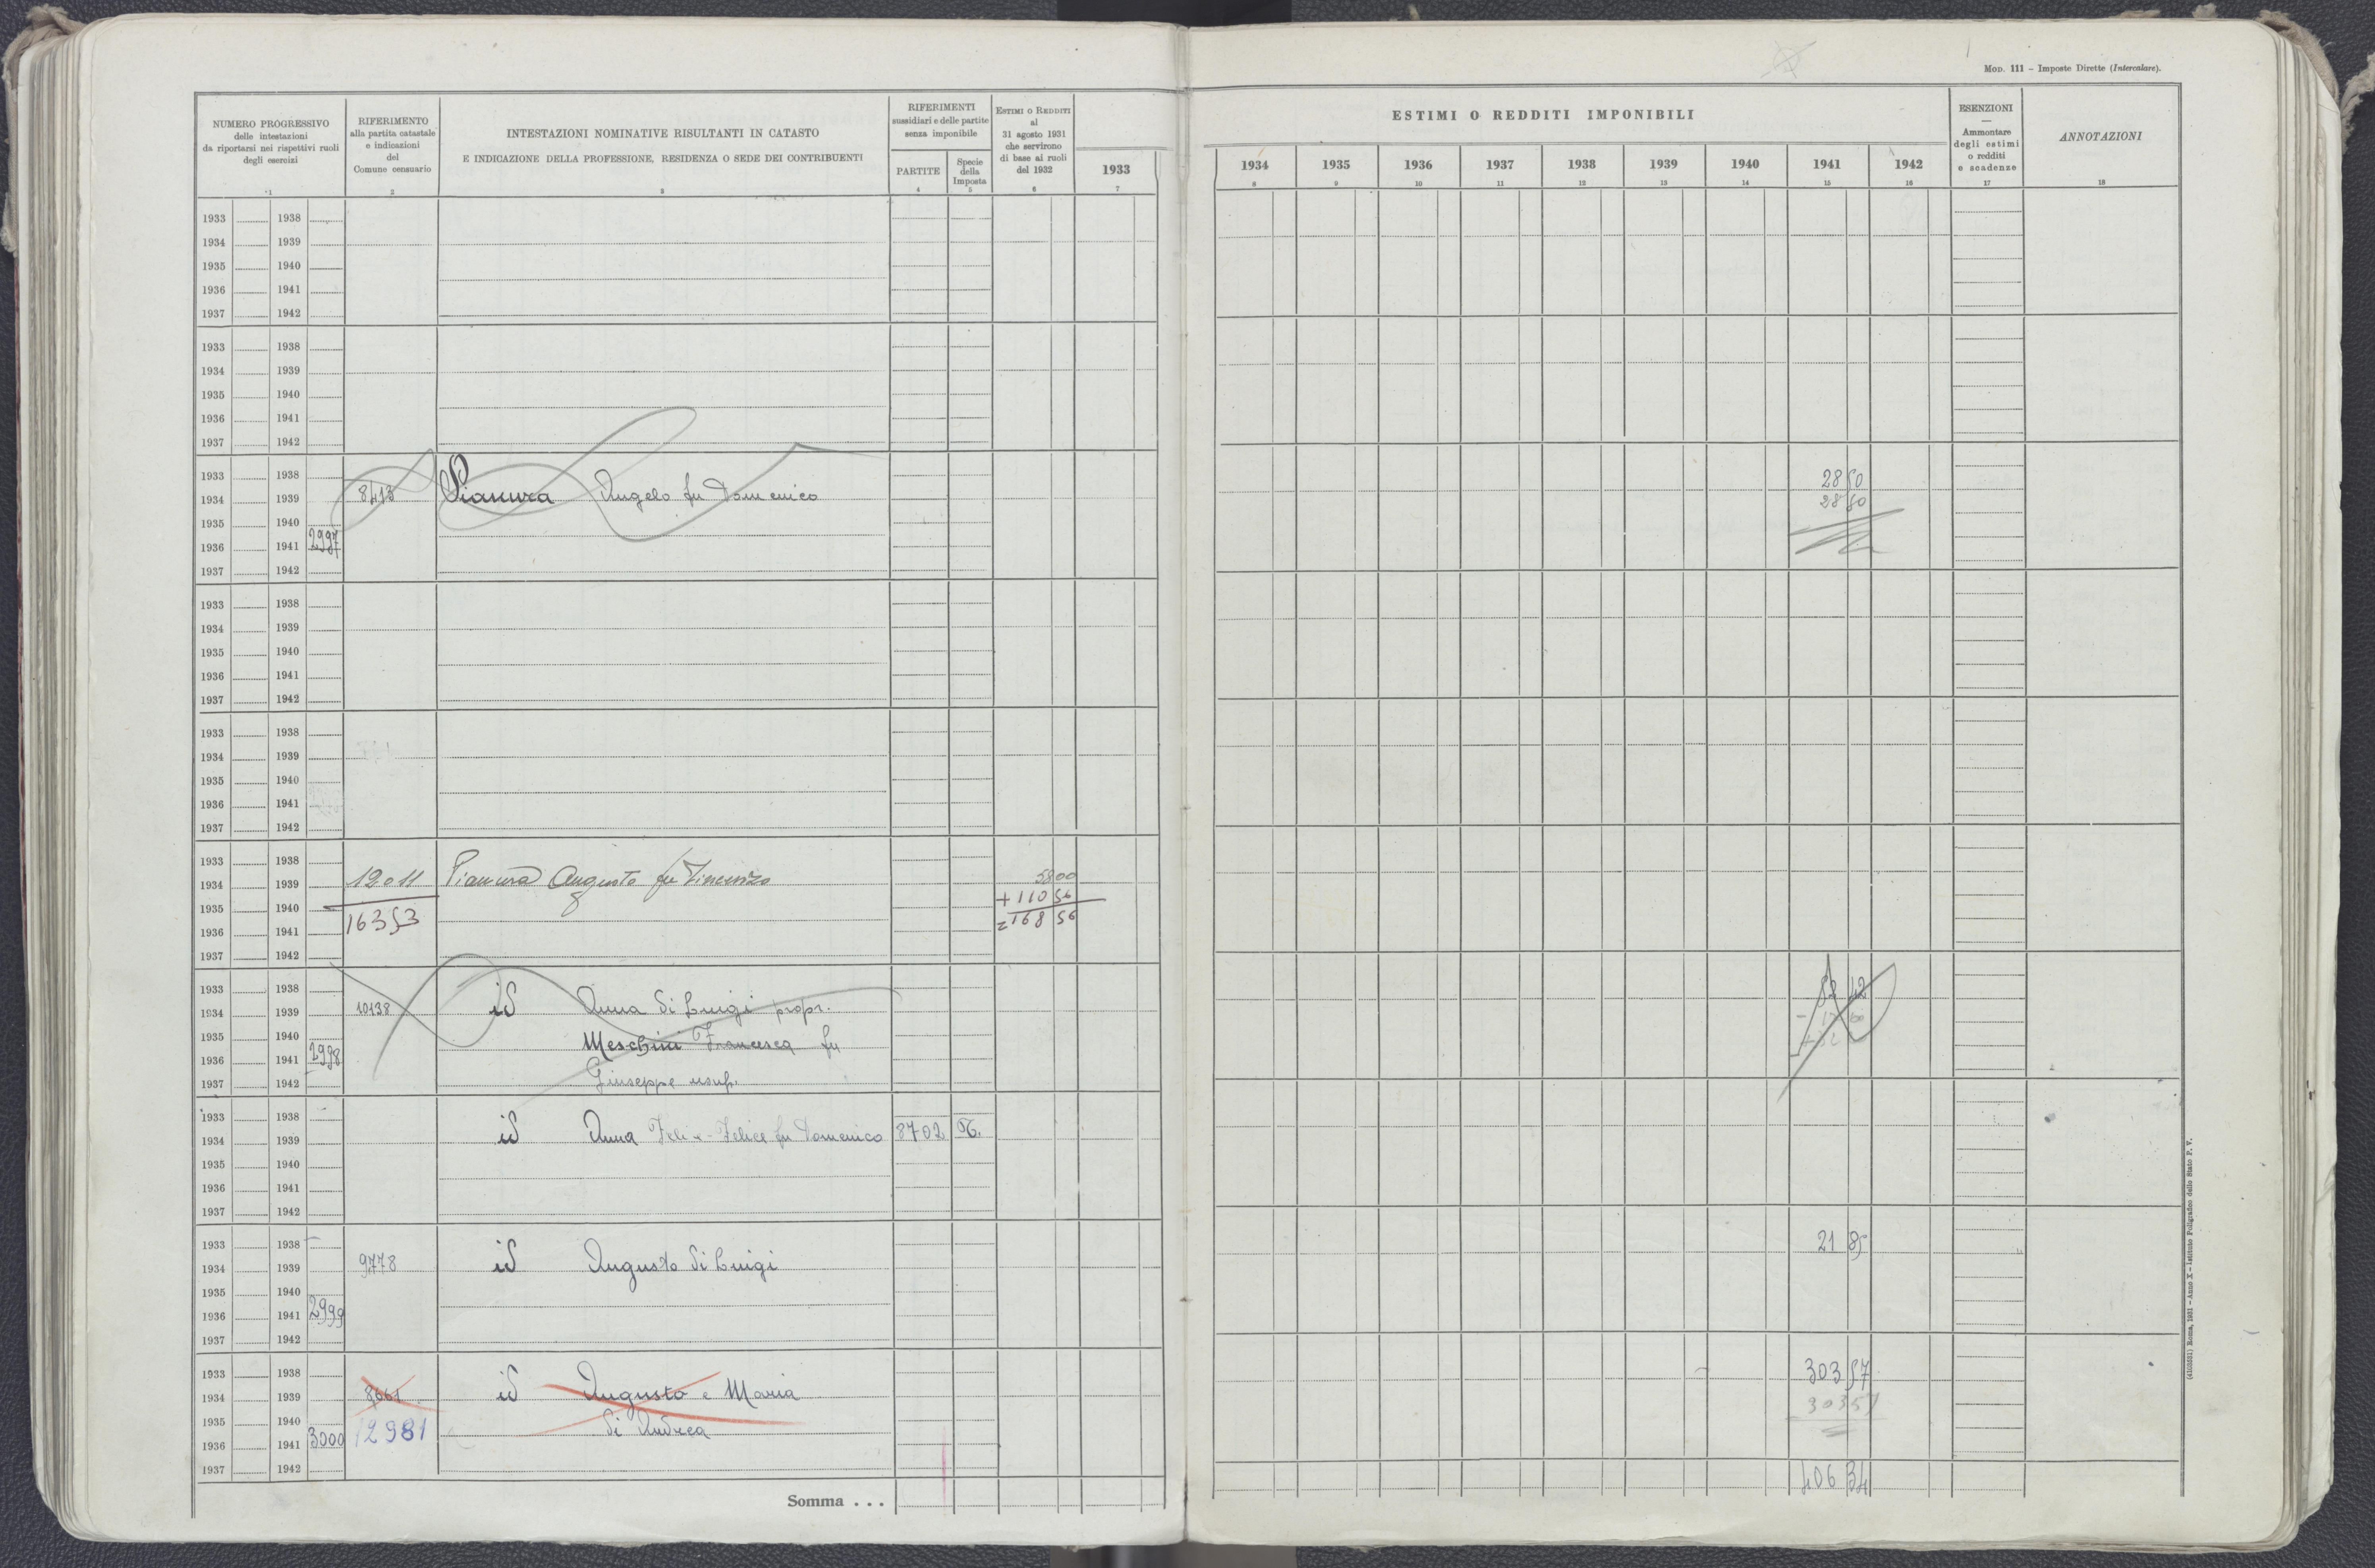 MOD. 111 – Imposte Dirette (Intercalare).
NUMERO PROGRESSIVO
delle intestazioni
da riportarsi nei rispettivi ruoli
degli esercizi
1
RIFERIMENTO
alla partita catastale
e indicazioni
del
Comune censuario
2
INTESTAZIONI NOMINATIVE RISULTANTI IN CATASTO
E INDICAZIONE DELLA PROFESSIONE, RESIDENZA O SEDE DEI CONTRIBUENTI
3
RIFERIMENTI
sussidiari e delle partite
senza imponibile
PARTITE
4
Specie
della
Imposta
5
ESTIMI O REDDITI
al
31 agosto 1931
che servirono
di base ai ruoli
del 1932
6
1933
7
ESTIMI O REDDITI IMPONIBILI
1934 1935 1936 1937 1938 1939 1940 1941 1942
8 9 10 11 12 13 14 15 16
ESENZIONI
—
Ammontare
degli estimi
o redditi
e scadenze
17
ANNOTAZIONI
18
1933 1938
1934 1939
1935 1940
1936 1941
1937 1942
1933 1938
1934 1939
1935 1940
1936 1941
1937 1942
1933 1938 28 50
1934 1939 8413 Pianura Angelo fu Domenico 28 50
1935 1940
1936 1941 2997
1937 1942
1933 1938
1934 1939
1935 1940
1936 1941
1937 1942
1933 1938
1934 1939
1935 1940
1936 1941
1937 1942
1933 1938
1934 1939 12011 Pianura Augusto fu Vincenzo 58 00
1935 1940 + 110 56
1936 1941 16353 = 168 56
1937 1942
1933 1938 42
1934 1939 10138 id Anna di Luigi propr.
1935 1940 Meschini Francesca fu
1936 1941 2998
1937 1942 Giuseppe usuf.
1933 1938
1934 1939 id Anna Felice fu Domenico 8702
1935 1940
1936 1941
1937 1942
1933 1938 21 85
1934 1939 9778 id Augusto di Luigi
1935 1940
1936 1941 2999
1937 1942
1933 1938 303 57
1934 1939 8661 id Augusto e Maria 303 57
1935 1940 12981 di Andrea
1936 1941 3000
1937 1942
Somma . . . 406 34
(4103631) Roma, 1931 – Anno X – Istituto Poligrafico dello Stato P. V.